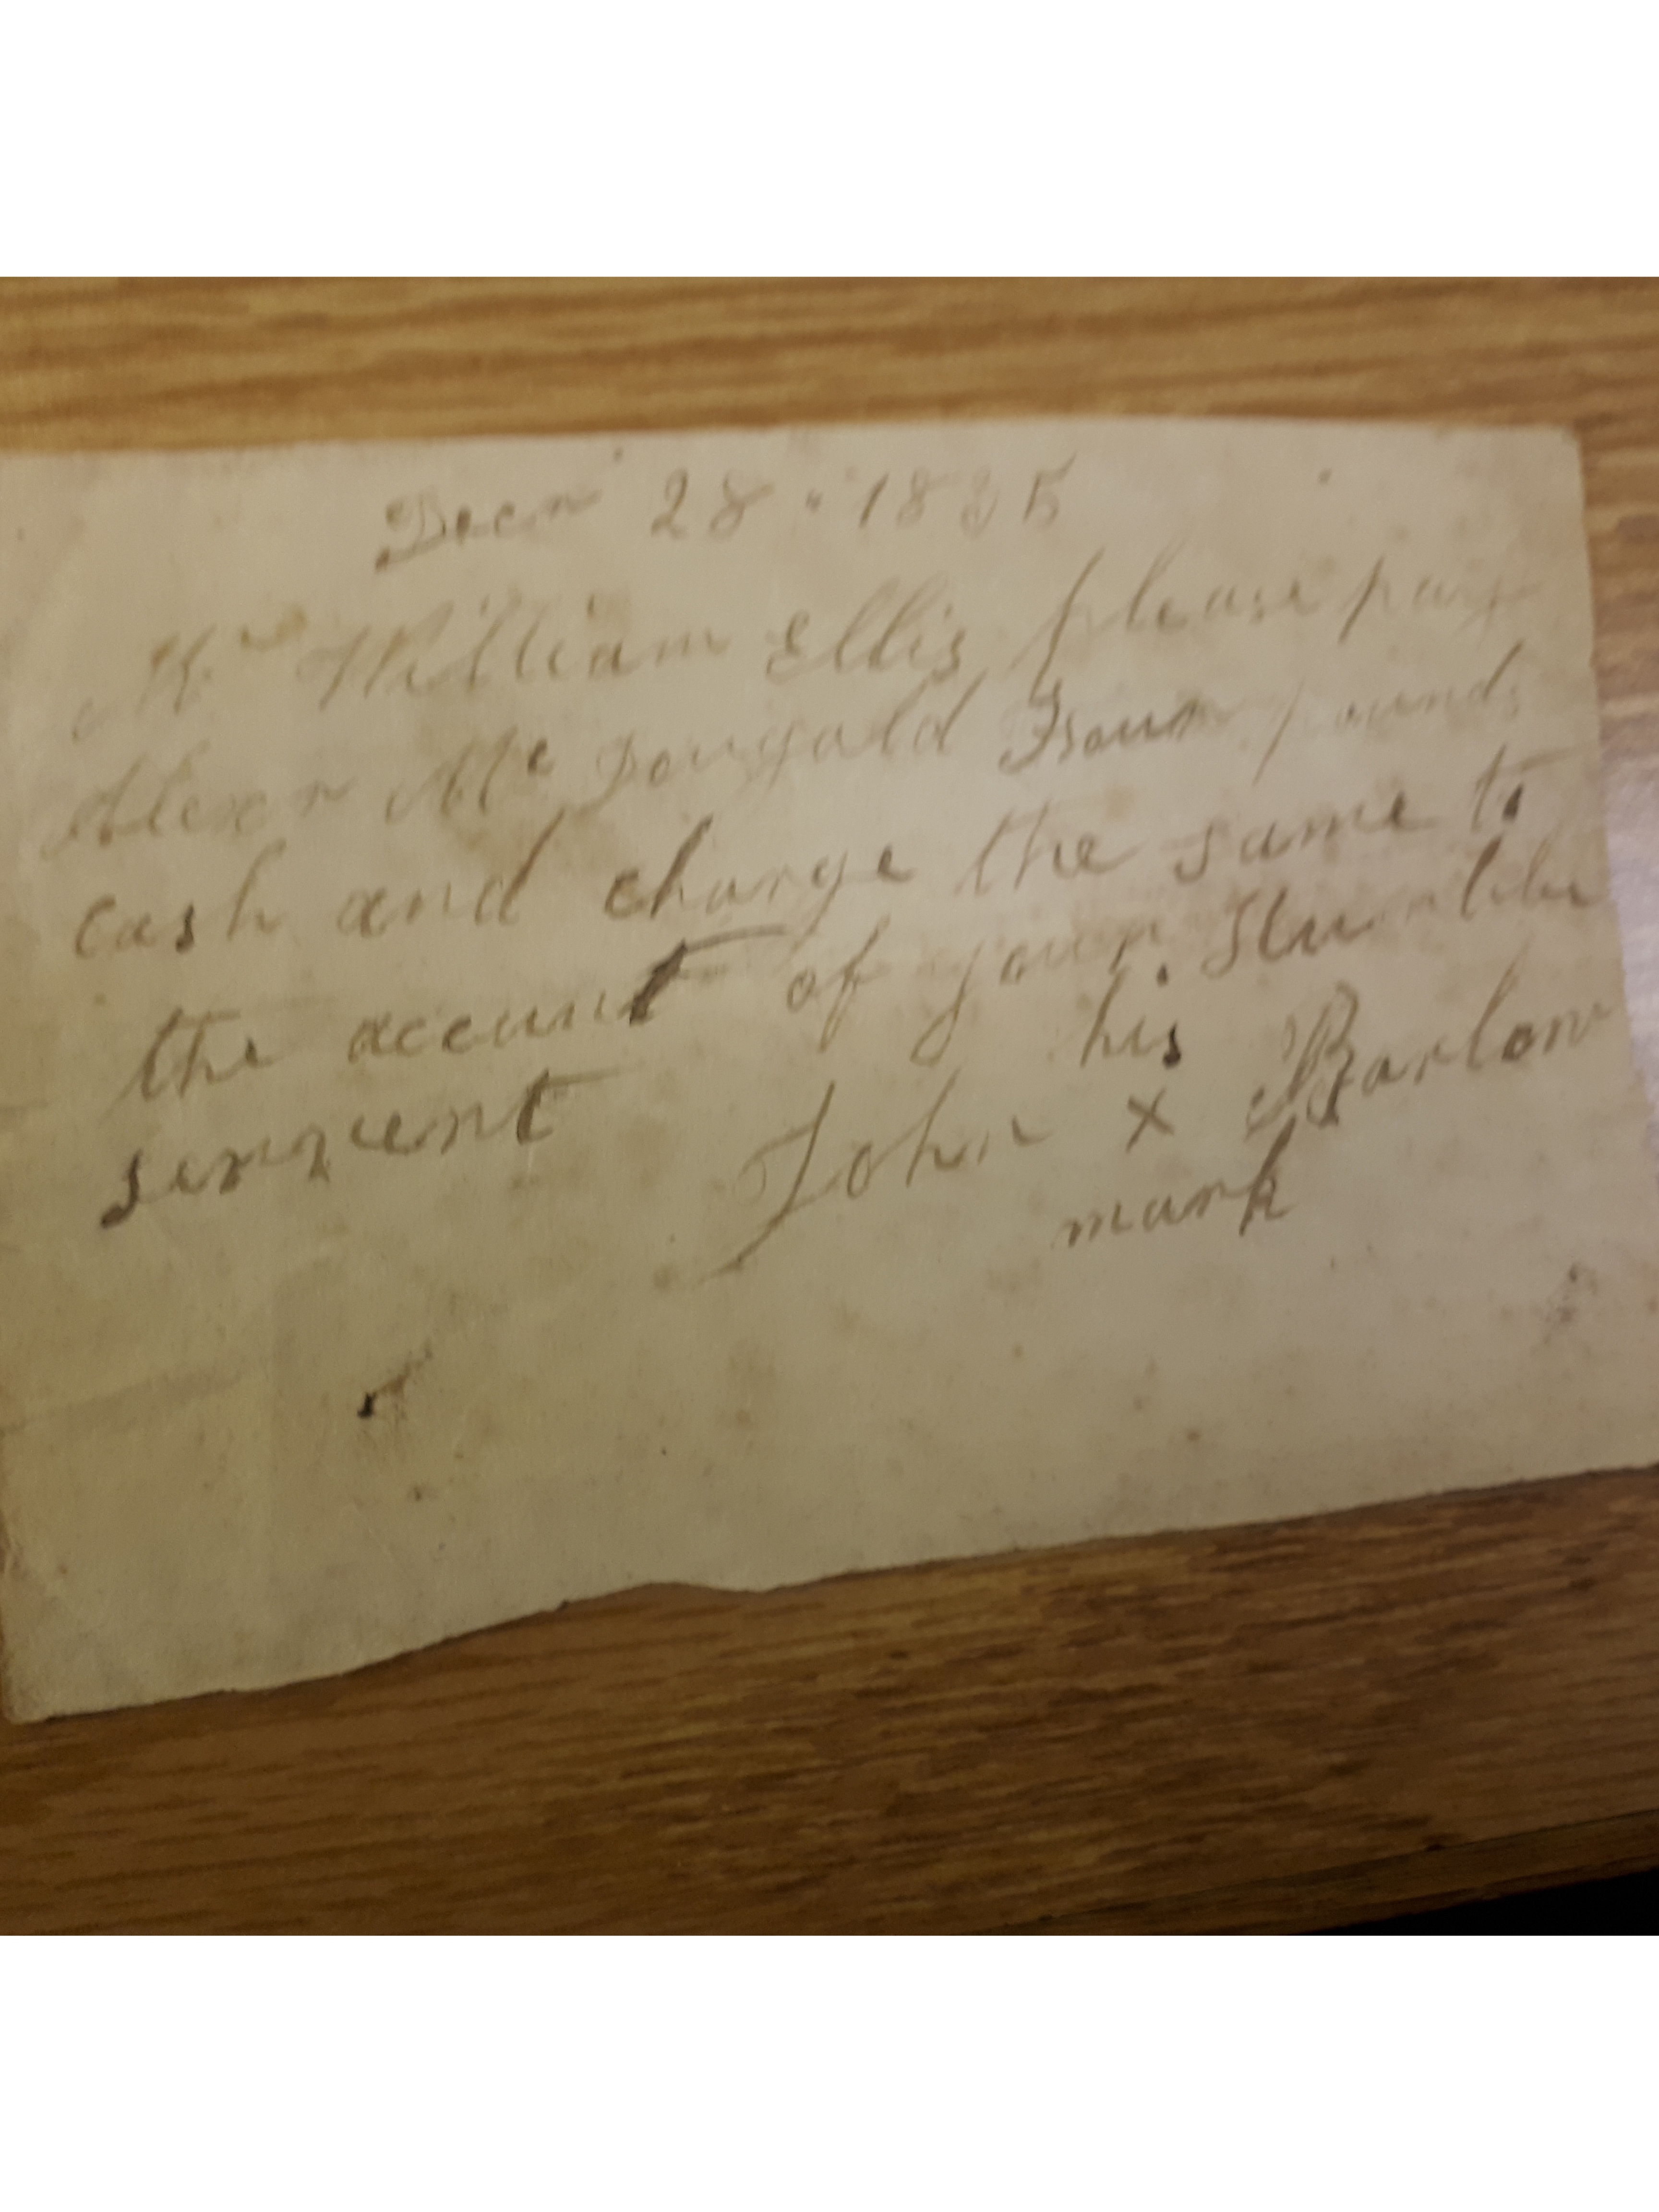 Decr 28 · 1835
Mr William Ellis please pay
Alexr Mc Dougald Four pounds
cash and charge the same to
the account of your Humble
servent
his
John x Barlow
mark